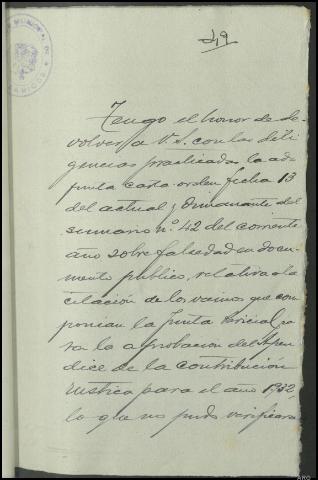 49
Tengo el honor de de-
volver a V. S. con las dili
gencias practicadas la ad-
junta carta-orden fecha 13
del actual y dimanante del
sumario nº 42 del corriente
año sobre falsedad en docu-
mento publico, relativa a la
citación de los vecinos que com
ponian la Junta Pericial pa
ra la aprobacion del Apen
dice de la contribución
rústica para el año 1932,
lo que no pudo verificarse